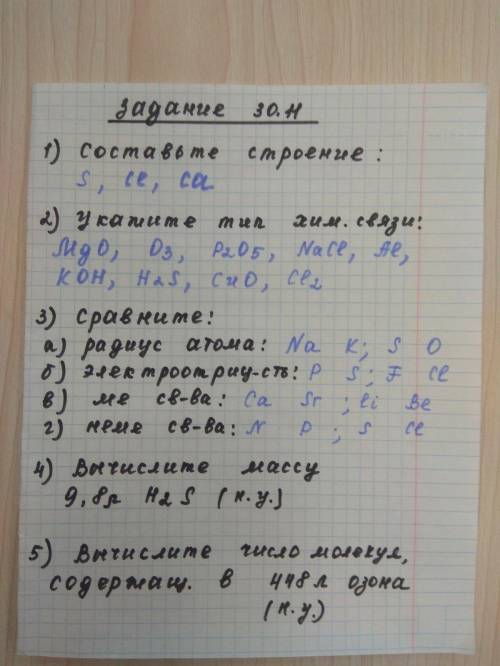 Задание 30.Н
1) Составьте строение:
S, Cl, Ca
2) Укажите тип хим. связи:
MgO, O3, P2O5, NaCl, Al,
KOH, H2S, CuO, Cl2
3) Сравните:
а) радиус атома: Na K; S O
б) электроотриц-сть: P S; F Cl
в) ме св-ва: Ca Sr ; Li Be
г) неме св-ва: N P ; S Cl
4) Вычислите массу
9,8л H2S (н.у.)
5) Вычислите число молекул,
содержащ. в 448 л озона
(н.у.)